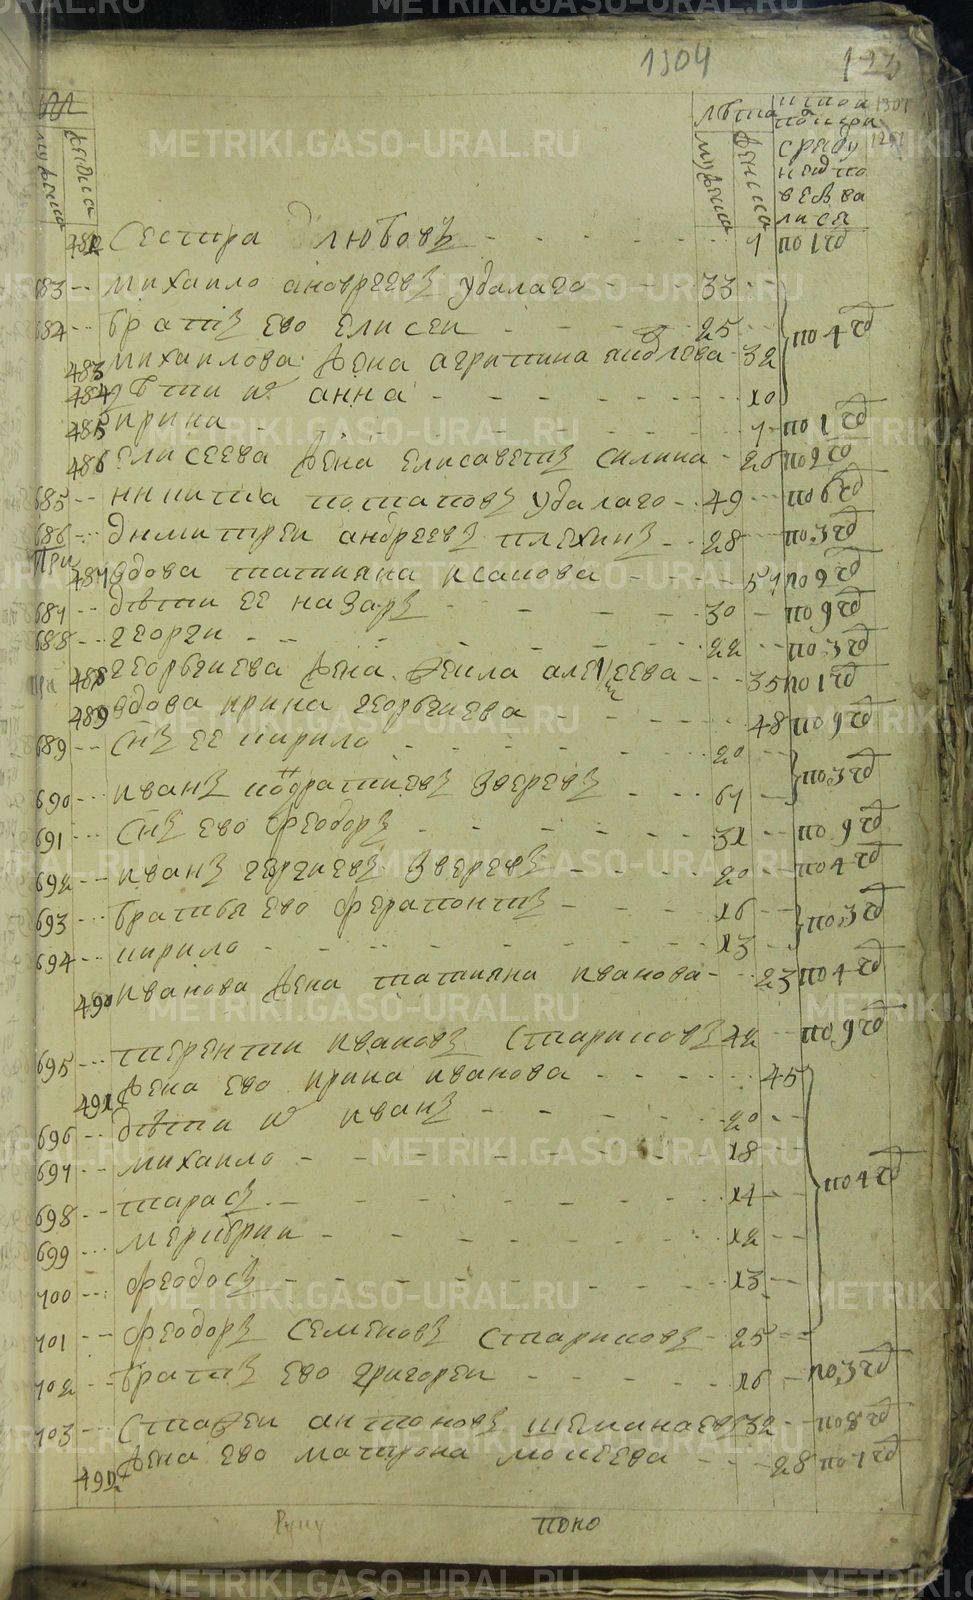 METRIKI.GASO-URAL.RU
1304
123
мужеска
женска
лѣта
мужеска
женска
сряду
482 сестра любовъ - - - 7 по 1 гд
683 -- михаило андреевъ удалаго - - - 33
684 -- братъ ево елисеи - - - 25 по 4 гд
483 михаилова жена агрипина - 32
484 дѣти ихъ анна - - - 10
485 ирина - - - 7 по 1 гд
486 елисеева жена елисаветъ силина - 26 по 2 гд
685 -- никита потаповъ удалаго - 49 по 6 гд
686 -- димитреи андреевъ плехинъ - 28 по 3 гд
487 вдова татияна исакова - - - 57 по 9 гд
687 -- дѣти ее назаръ - - - 30 по 9 гд
688 -- георги - - - 22 по 3 гд
488 георьгиева жена алексеева - - - 35 по 1 гд
489 вдова ирина георьгиева - - - 48 по 9 гд
689 -- снъ ее кирило - - - 20
690 -- иванъ кодратиевъ зверевъ - - - 67 по 3 гд
691 -- снъ ево феодоръ - - - 31 по 9 гд
692 -- иванъ гергиевъ зверевъ - - - 20 по 4 гд
693 -- братья ево ферапонтъ - - - 16 по 3 гд
694 -- кирило - - - 13
490 иванова жена татияна иванова - - 23 по 4 гд
695 -- терентии ивановъ стариковъ 42 по 9 гд
491 жена ево ирина иванова - - - 45
696 -- дѣти ихъ иванъ - - - 20
697 -- михаило - - - 18
698 -- тарасъ - - - 14 по 4 гд
699 -- меркурии - - - 12
700 -- феодосъ - - - 13
701 -- феодоръ семеновъ стариковъ - 25
702 -- братъ ево григореи - - - 16 по 3 гд
703 -- стафеи антоновъ 32 по 8 гд
492 жена ево матрона моисеева - - - 28 по 1 гд